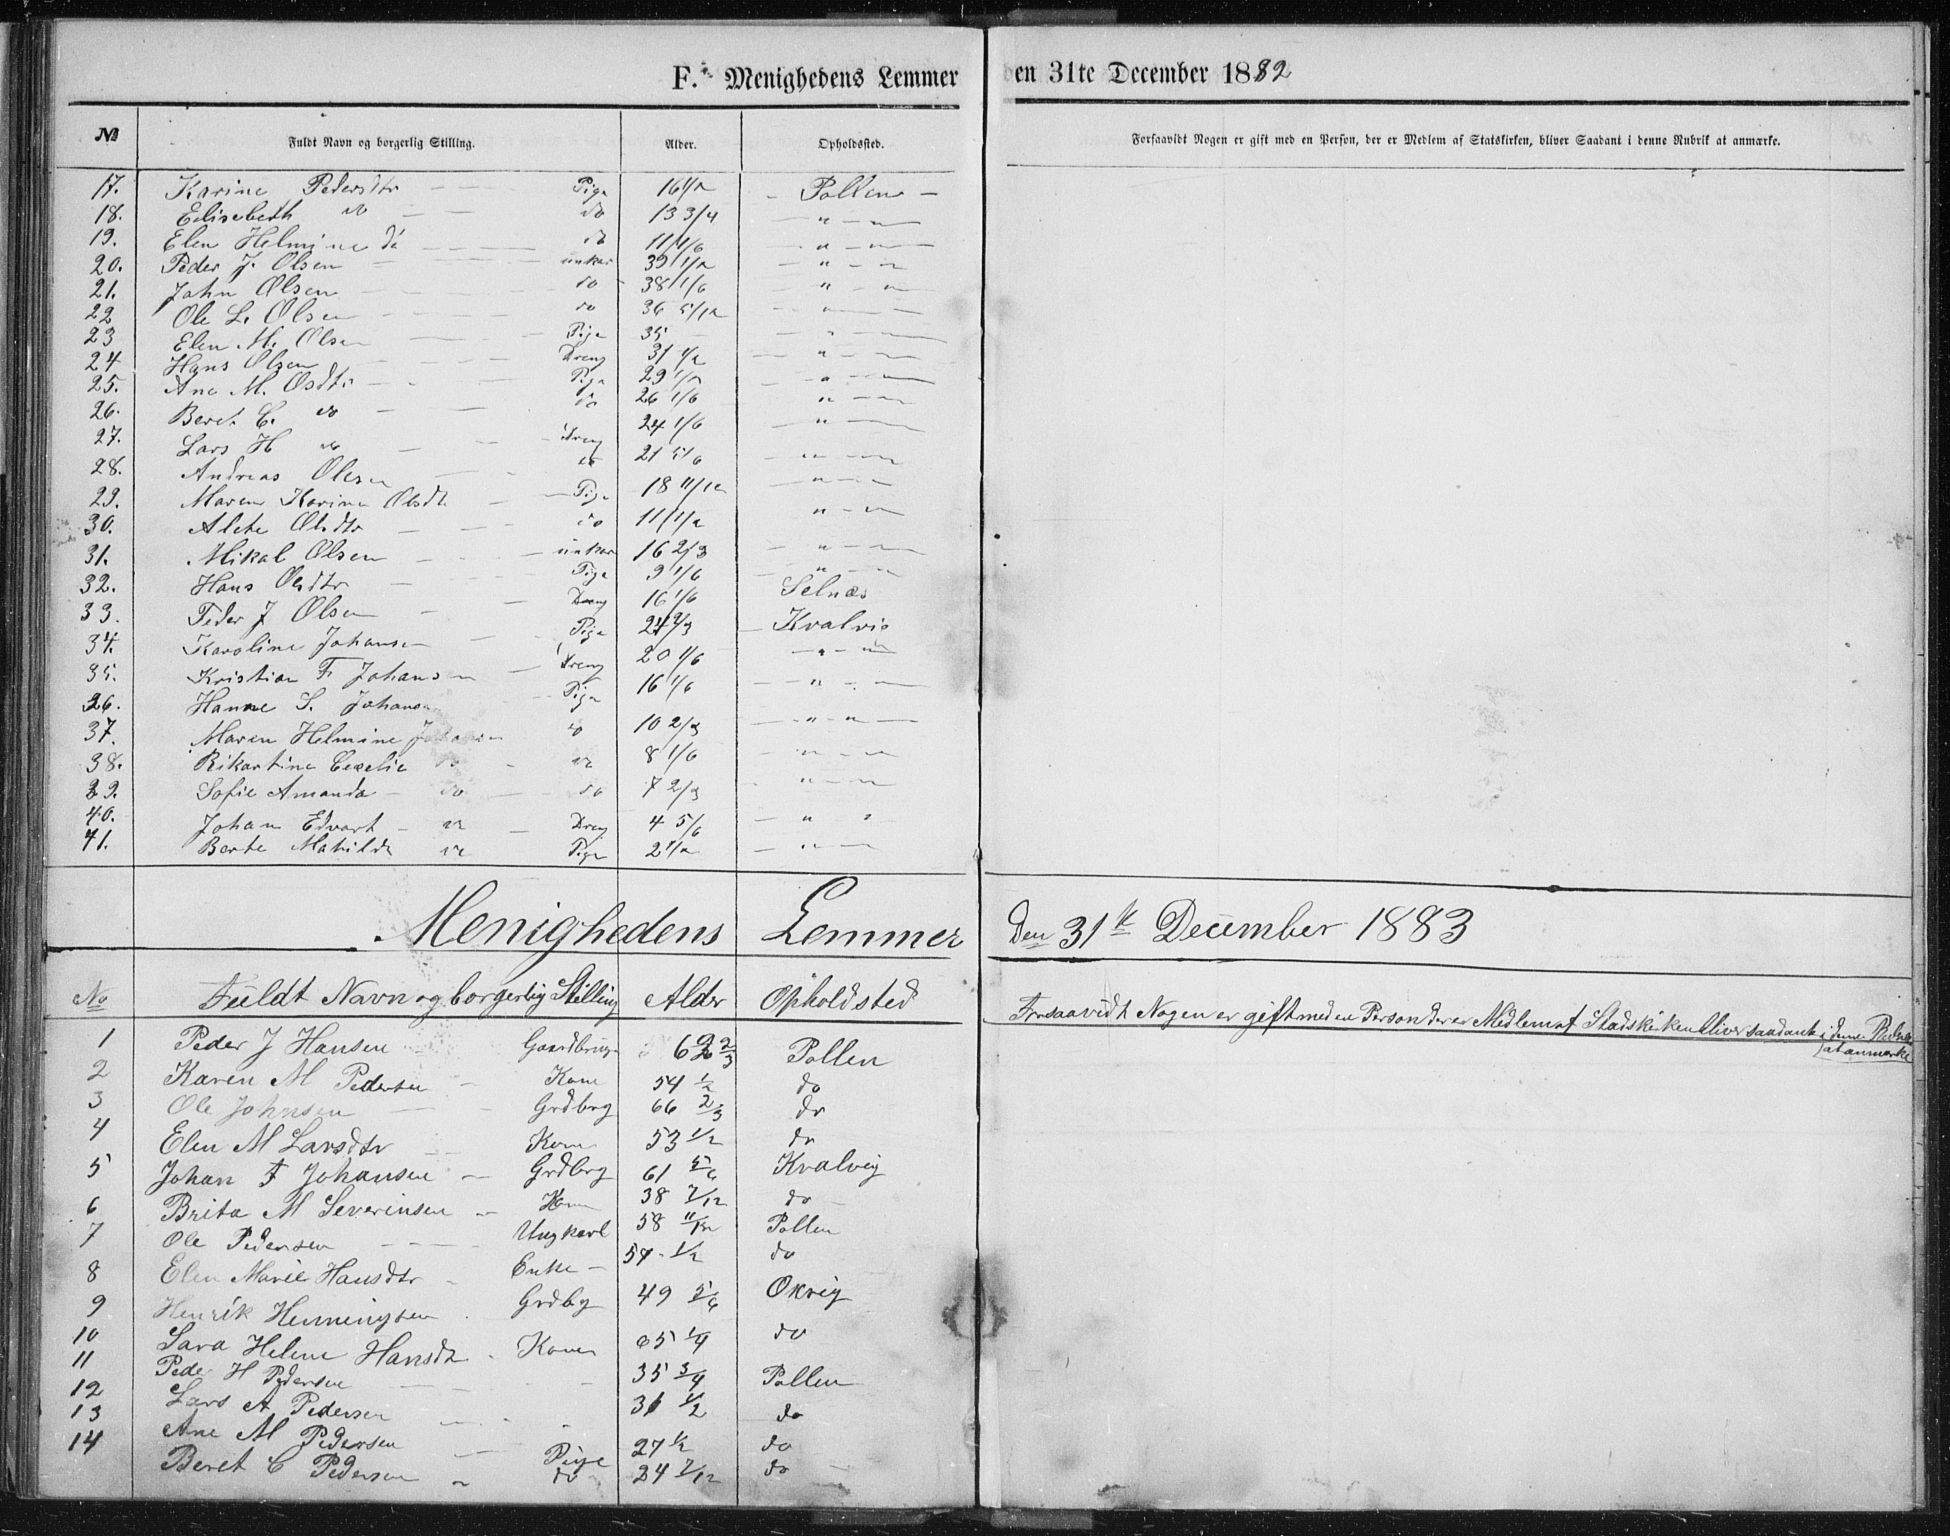 F. Menighedens Lemmer den 31te December 1882
№ Fuldt Navn og borgerlig Stilling. Alder. Opholdssted. Forsaavidt Nogen er gift med en Person, der er Medlem af Statskirken, bliver Saadant i denne Rubrik at anmærke.
17. Karine Pedersdtr — Pige 16 1/2 — Pollen —
18. Elisebeth do — — do 13 3/4 — " — "
19. Elen Helmine do — — do 11 1/6 — " — "
20. Peder J. Olsen — — unkar 39 1/2 — " — "
21. John Olsen — — do 38 1/6 — " — "
22 Ole L. Olsen — — do 36 5/12 — " —
23 Elen M. Olsen — — Pige 35 — " —
24 Hans Olsen — Dreng 31 1/2 — " — "
25. Ane M. Osdtr — — Pige 29 1/2 — " — "
26. Beret C. do — — do 26 1/6 — " — "
27. Lars H do — — Dreng 24 1/6 — " — "
28. Andreas Olsen — — do 21 5/6 — " — "
29. Maren Karine Olsdt — Pige 18 11/12 — " — "
30. Alete Olsdtr — — do 11 1/2 — " — "
31. Mikal Olsen — — unkar 16 2/3 — " — "
32. Hans Olsdtr — Pige 9 1/6 — " — "
33. Peder J Olsen — — Dreng 16 1/6 Selnæs
34. Karoline Johansen — Pige 24 2/3 — Kvalvig
35. Kristian F Johansen — Dreng 20 1/6 — " — "
36. Hanne S. Johansen — Pige 16 1/6 — " — "
37. Maren Helmine Johansen do 10 2/3 — " — "
38. Rikartine Cecelie do — do 8 1/6 " — "
39. Sofie Amanda — do — do 7 2/3 — " — "
40. Johan Edvart — do — Dreng 4 5/6 — " "
41. Berte Mathilde do Pige 2 1/2 — " —
Menighedens Lemmer Den 31te December 1883
No Fuldt Navn og borgerlig Stilling Alder Opholdsted Forsaavidt Nogen er gift med en Person der er Medlem af Stadskirken bliver saadant i denne Rubrik
at anmærke
1 Peder J Hansen Gaardbruge 62 2/3 Pollen
2 Karen M Pedersen — Kone 54 1/2 do
3 Ole Johnsen — Grdbrg 66 2/3 do
4 Elen M Larsdtr — Kone 53 1/2 do
5 Johan F Johansen — Grdbrg 61 5/6 Kvalvig
6 Brita M Severinsen — Kone 38 7/12 do —
7 Ole Pedersen — — Ungkarl 58 11/12 Pollen
8 Elen Marie Hansdtr — Enke — 54 1/2 do
9 Henrik Henningsen Grdbg 49 5/6 Okvig
10 Sara Helene Hansdtr Kone 65 1/4 do
11 Peder H Pedersen — — 35 3/4 Pollen
12 Lars A Pedersen — 31 1/2 do
13 Ane M Pedersen — Pige 27 1/2 do
14 Beret C Pedersen „ do 24 7/12 do —